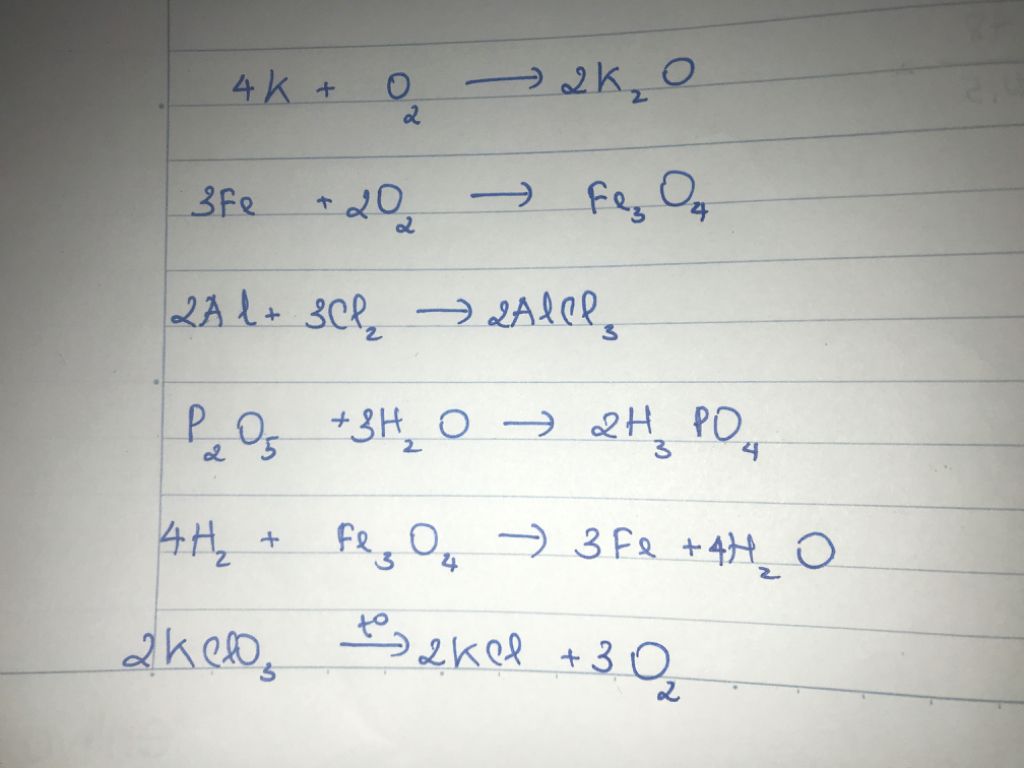 4K + O₂ → 2K₂O
3Fe + 2O₂ → Fe₃O₄
2Al + 3Cl₂ → 2AlCl₃
P₂O₅ + 3H₂O → 2H₃PO₄
4H₂ + Fe₃O₄ → 3Fe + 4H₂O
2KClO₃ —t°→ 2KCl + 3O₂